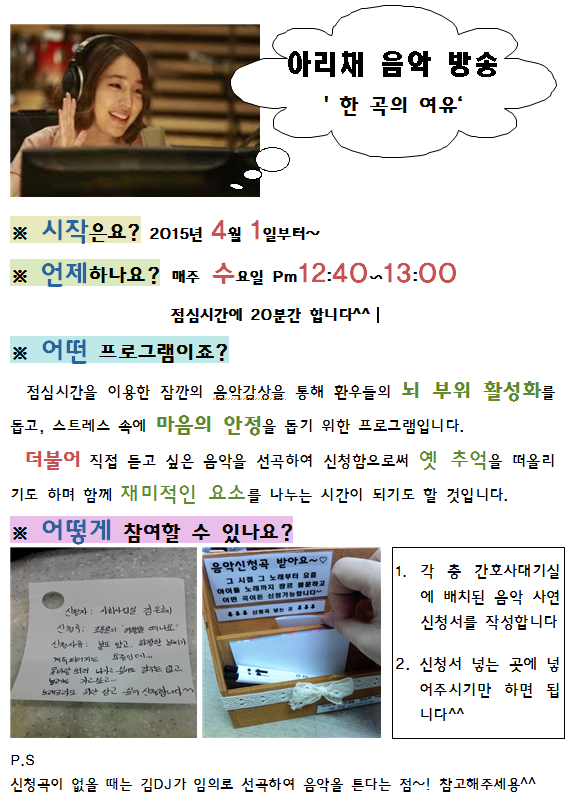 아리채 음악 방송
' 한 곡의 여유‘
※ 시작은요? 2015년 4월 1일부터~
※ 언제하나요? 매주 수요일 Pm12:40~13:00
점심시간에 20분간 합니다^^
※ 어떤 프로그램이죠?
점심시간을 이용한 잠깐의 음악감상을 통해 환우들의 뇌 부위 활성화를
돕고, 스트레스 속에 마음의 안정을 돕기 위한 프로그램입니다.
더불어 직접 듣고 싶은 음악을 선곡하여 신청함으로써 옛 추억을 떠올리
기도 하며 함께 재미적인 요소를 나누는 시간이 되기도 할 것입니다.
※ 어떻게 참여할 수 있나요?
신청자 : 사회사업실
신청곡 : 조용필의 '여행을 떠나요'
신청사유 : 봄도 왔고, 화창한 날씨가
음악신청곡 받아요~♡
그 시절 그 노래부터 요즘
아이돌 노래까지 장르 불문하고
어떤 곡이든 신청가능합니다^^
신청곡 넣는 곳
1. 각 층 간호사대기실
에 배치된 음악 사연
신청서를 작성합니다
2. 신청서 넣는 곳에 넣
어주시기만 하면 됩
니다^^
P.S
신청곡이 없을 때는 김DJ가 임의로 선곡하여 음악을 튼다는 점~! 참고해주세용^^